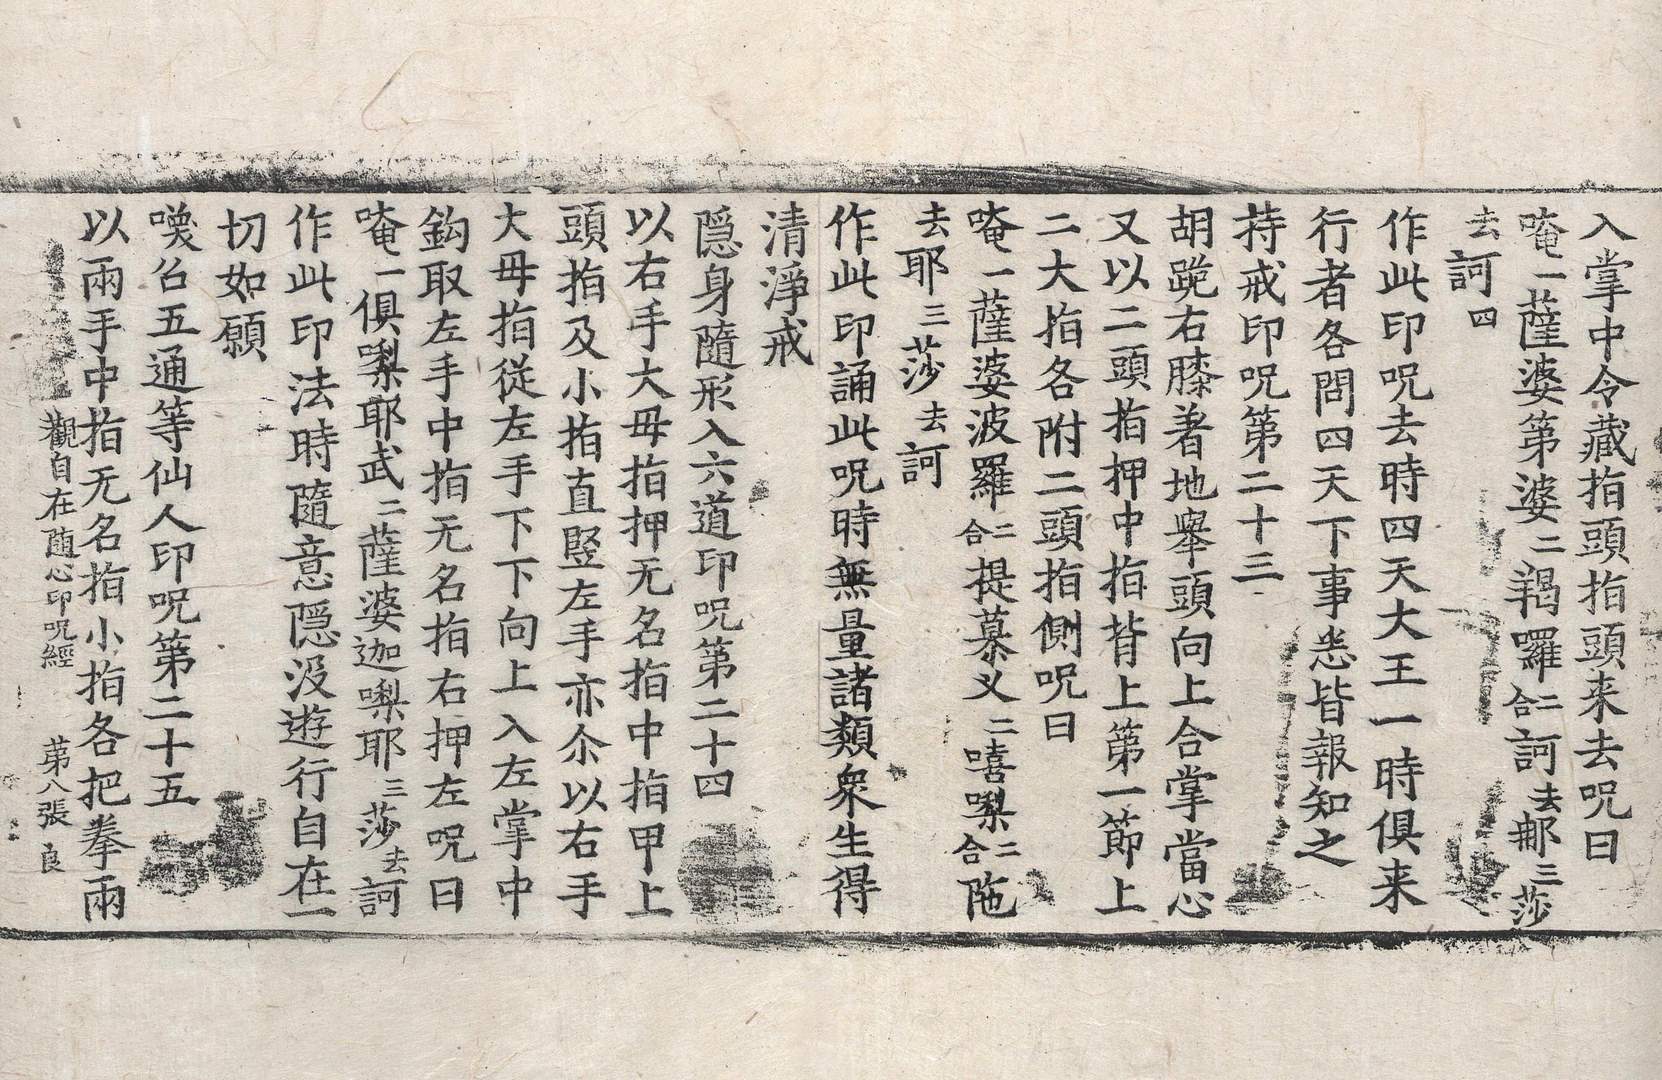 入掌中令藏指頭指頭来去呪曰
唵一薩婆第婆二羯囉二合訶去郝三莎
去訶四
作此印呪去時四天大王一時俱来
行者各問四天下事悉皆報知之
持戒印呪第二十三
胡跪右膝著地舉頭向上合掌當心
又以二頭指押中指背上第一節上
二大指各附二頭指側呪曰
唵一薩婆波羅二合提慕乂二嘻㗚二合陁
去耶三莎去訶
作此印誦此呪時無量諸類衆生得
清淨戒
隱身隨形入六道印呪第二十四
以右手大母指押无名指中指甲上
頭指及小指直豎左手亦尒以右手
大母指従左手下下向上入左掌中
鈎取左手中指无名指右押左呪曰
唵一俱㗚耶武二薩婆迦㗚耶三莎去訶
作此印法時隨意隠没遊行自在一
切如願
喚召五通等仙人印呪第二十五
以兩手中指无名指小指各把拳兩
觀自在随心印呪經 苐八張 良